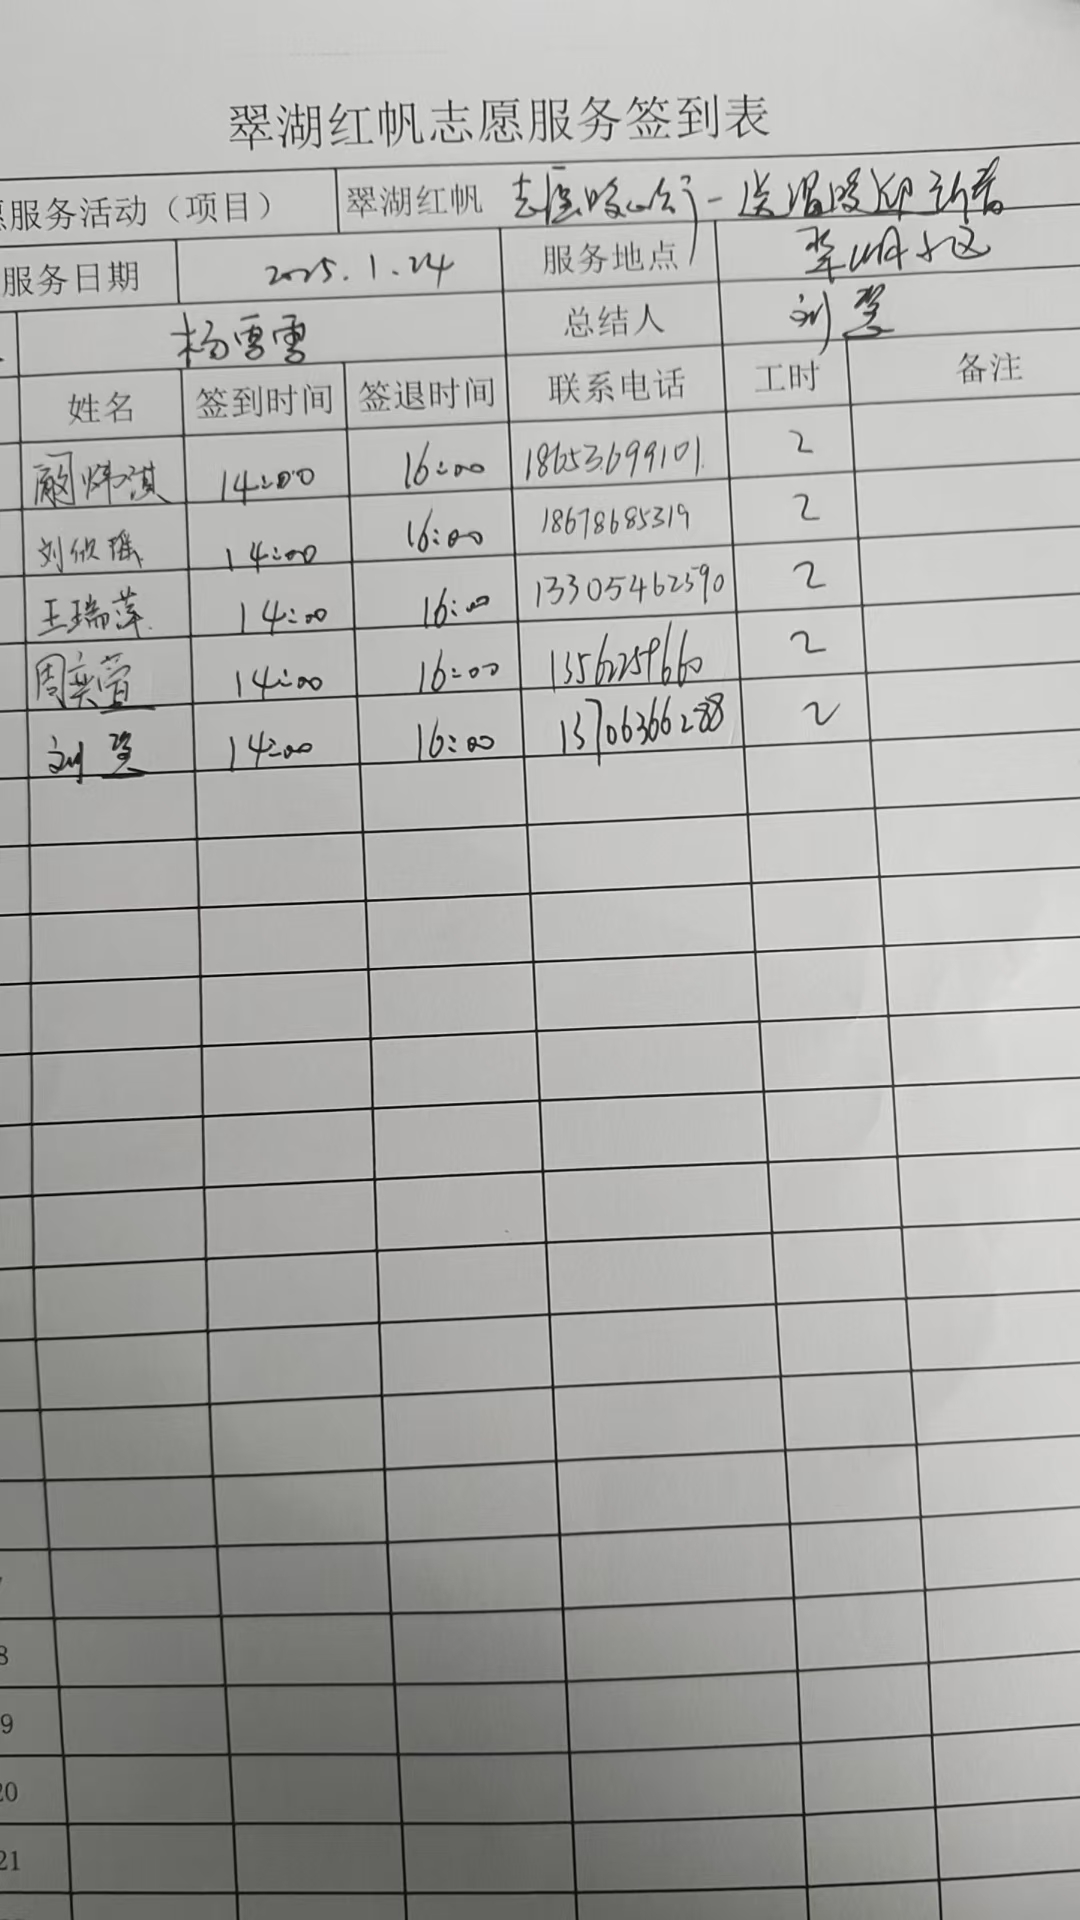 翠湖红帆志愿服务签到表
愿服务活动（项目） 翠湖红帆 志愿暖心行-送温暖迎新春
服务日期 2025.1.24 服务地点 翠湖小区
杨雪雪 总结人 刘慧
姓名 签到时间 签退时间 联系电话 工时 备注
14:00 16:00 18653699101 2
刘欣瑶 14:00 16:00 18678685319 2
王瑞萍 14:00 16:00 13305462590 2
周奕萱 14:00 16:00 13562259660 2
刘慧 14:00 16:00 13706366288 2
8
9
20
21